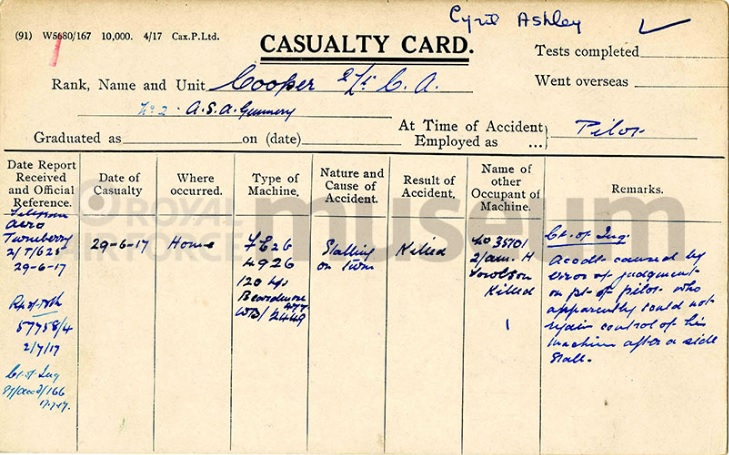 Cyril Ashley
(91) W5680/167 10,000. 4/17 Cax.P.Ltd.
CASUALTY CARD.
Tests completed
Rank, Name and Unit Cooper 2/Lt C. A.
Went overseas
No 2. A.S.A. Gunnery
Graduated as on (date)
At Time of Accident
Employed as ...
Pilot
Date Report Received and Official Reference.
Date of Casualty
Where occurred.
Type of Machine.
Nature and Cause of Accident.
Result of Accident.
Name of other Occupant of Machine.
Remarks.
ROYAL AIR FORCE museum
Aero
Turnberry
29-6-17
57758/4
2/7/17
Ct. of Inq
29-6-17
Home
FE2b
4926
120 hp
Beardmore
WD/ 2449
Stalling
on turn
Killed
35701
2/am. H
Killed
1
Ct. of Inq
Accdt caused by
error of judgment
on pt. of pilot who
apparently could not
regain control of his
machine after a side
stall.